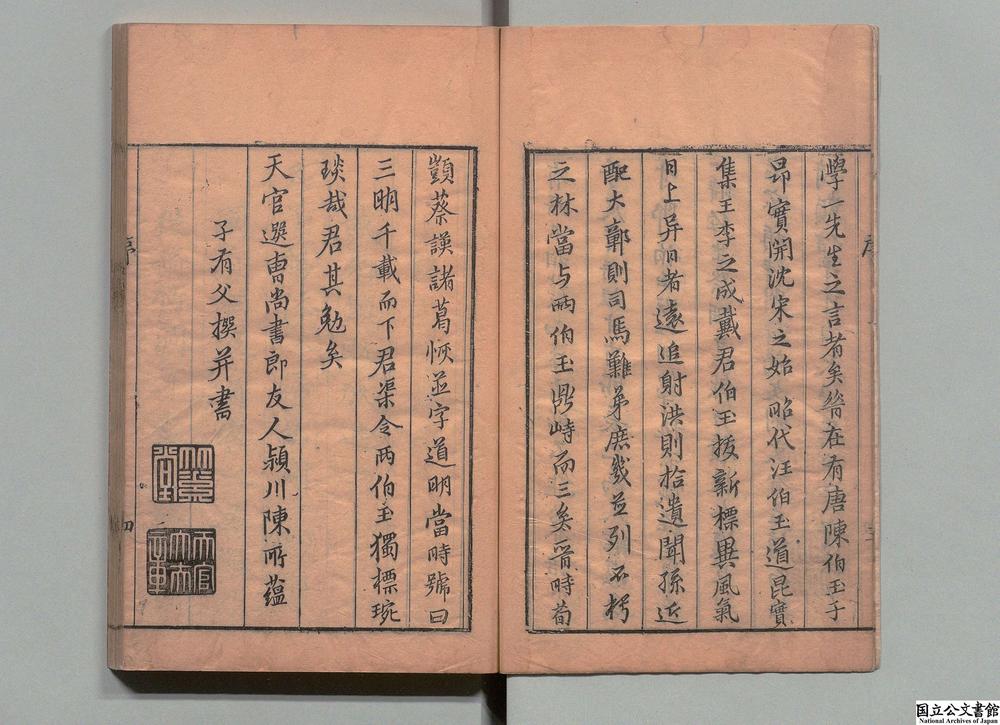 學一先生之言者矣昝在有唐陳伯玉子
昂實開沈宋之始昭代汪伯玉道昆實
集王李之成戴君伯玉拔新標異風氣
日上异日者遠追射洪則拾遺聞孫近
配大鄣則司馬難弟庶幾並列不朽
之林當与兩伯玉鼎峙而三矣晉時荀
顗蔡謨諸葛恢並字道明當時號曰
三明千載而下君渠令兩伯玉獨標琬
琰哉君其勉矣
天官選曹尚書郎友人潁川陳所蘊
子有父撰并書
序
四
国立公文書館
National Archives of Japan